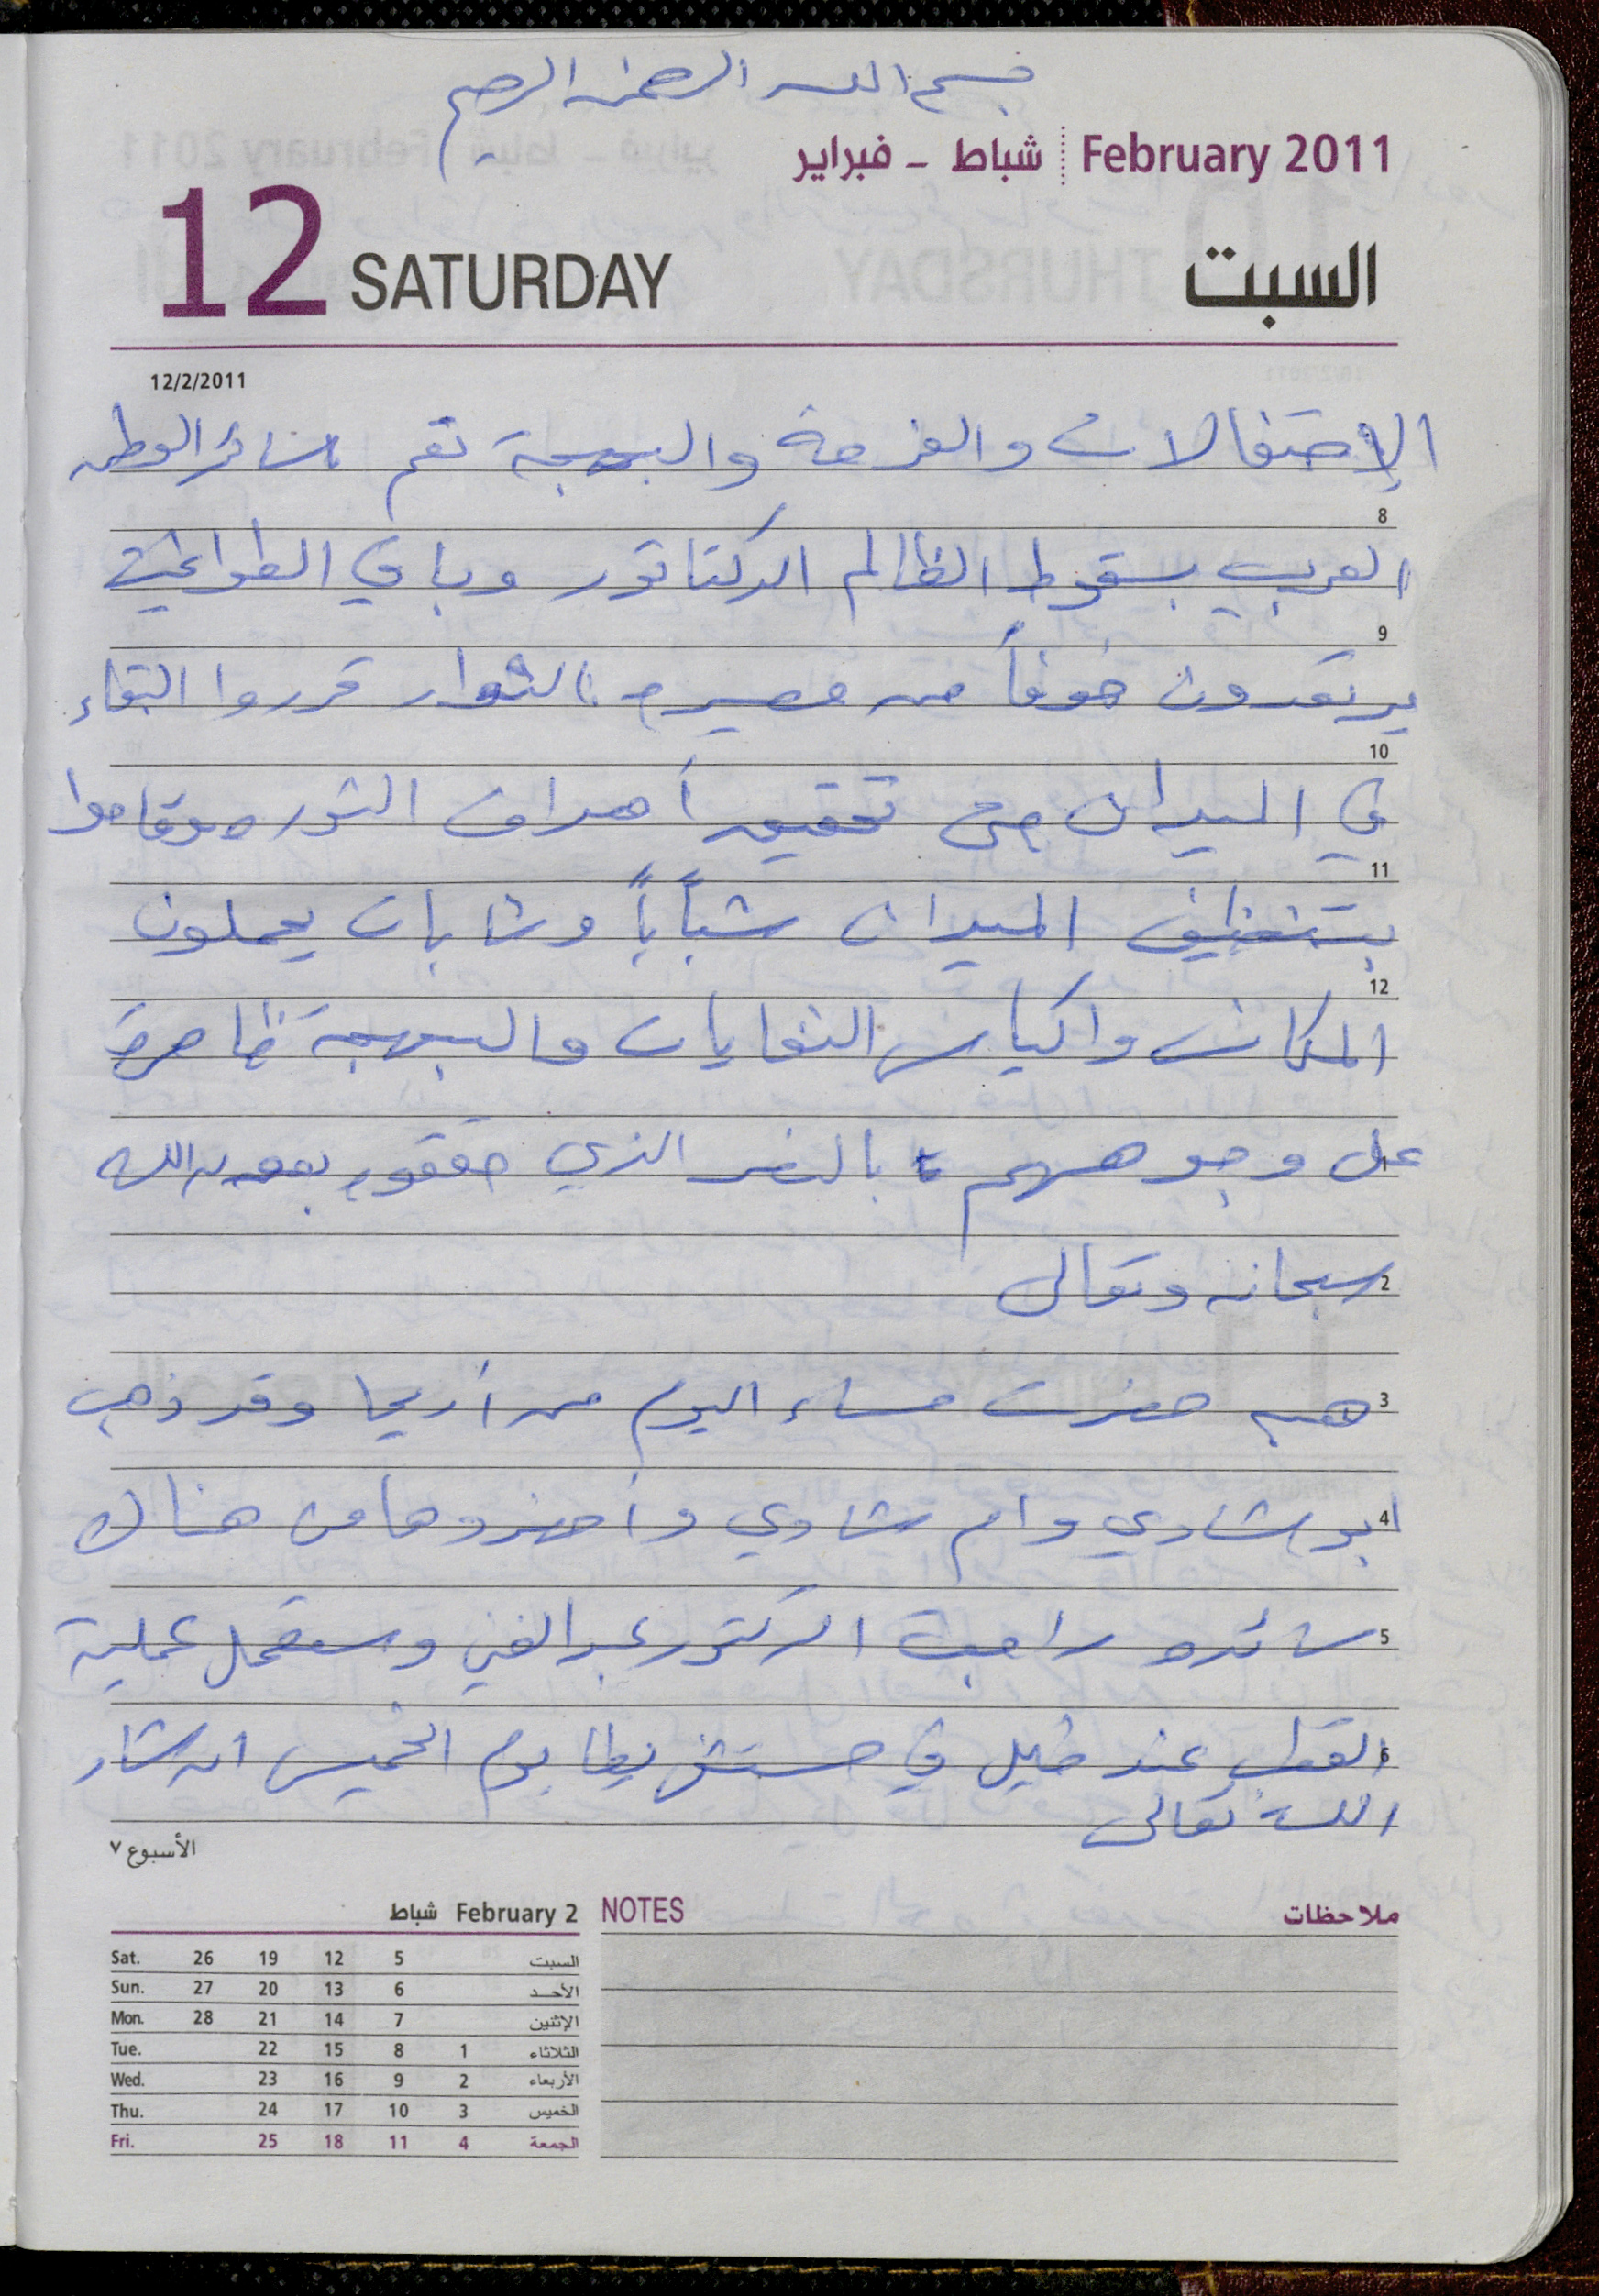 بسم الله الرحمن الرحيم
February 2011 شباط - فبراير
12 SATURDAY السبت
12/2/2011
الإحتفالات والفرحة والبهجة تعم سائر الوطن
8
العربي بسقوط الظالم الدكتاتور وباقي الطواغيت
9
يرتعدون خوفاً من مصيرهم، الثوار قرروا البقاء
10
في الميدان حتى تحقيق أهداف الثوره وقاموا
11
بتنظيف الميدان شباباً وشابات يحملون
12
المكانس واكياس النفايات والبهجة ظاهرة
على وجوههم بالنصر الذي حققوه بعون الله
2 سبحانه وتعالى
3 هبه حضرت مساء اليوم من أريحا وقد ذهب
4 ابو شادي وام شادي وأحضروها من هناك
5 سائده راجعت الدكتور عبد الغني وستعمل عملية
6 عند خليل في مستشفى يطا يوم الخميس ان شاء
الله تعالى
الأسبوع ٧
February 2 شباط
NOTES ملاحظات
Sat. 26 19 12 5 السبت
Sun. 27 20 13 6 الأحد
Mon. 28 21 14 7 الإثنين
Tue. 22 15 8 1 الثلاثاء
Wed. 23 16 9 2 الأربعاء
Thu. 24 17 10 3 الخميس
Fri. 25 18 11 4 الجمعة